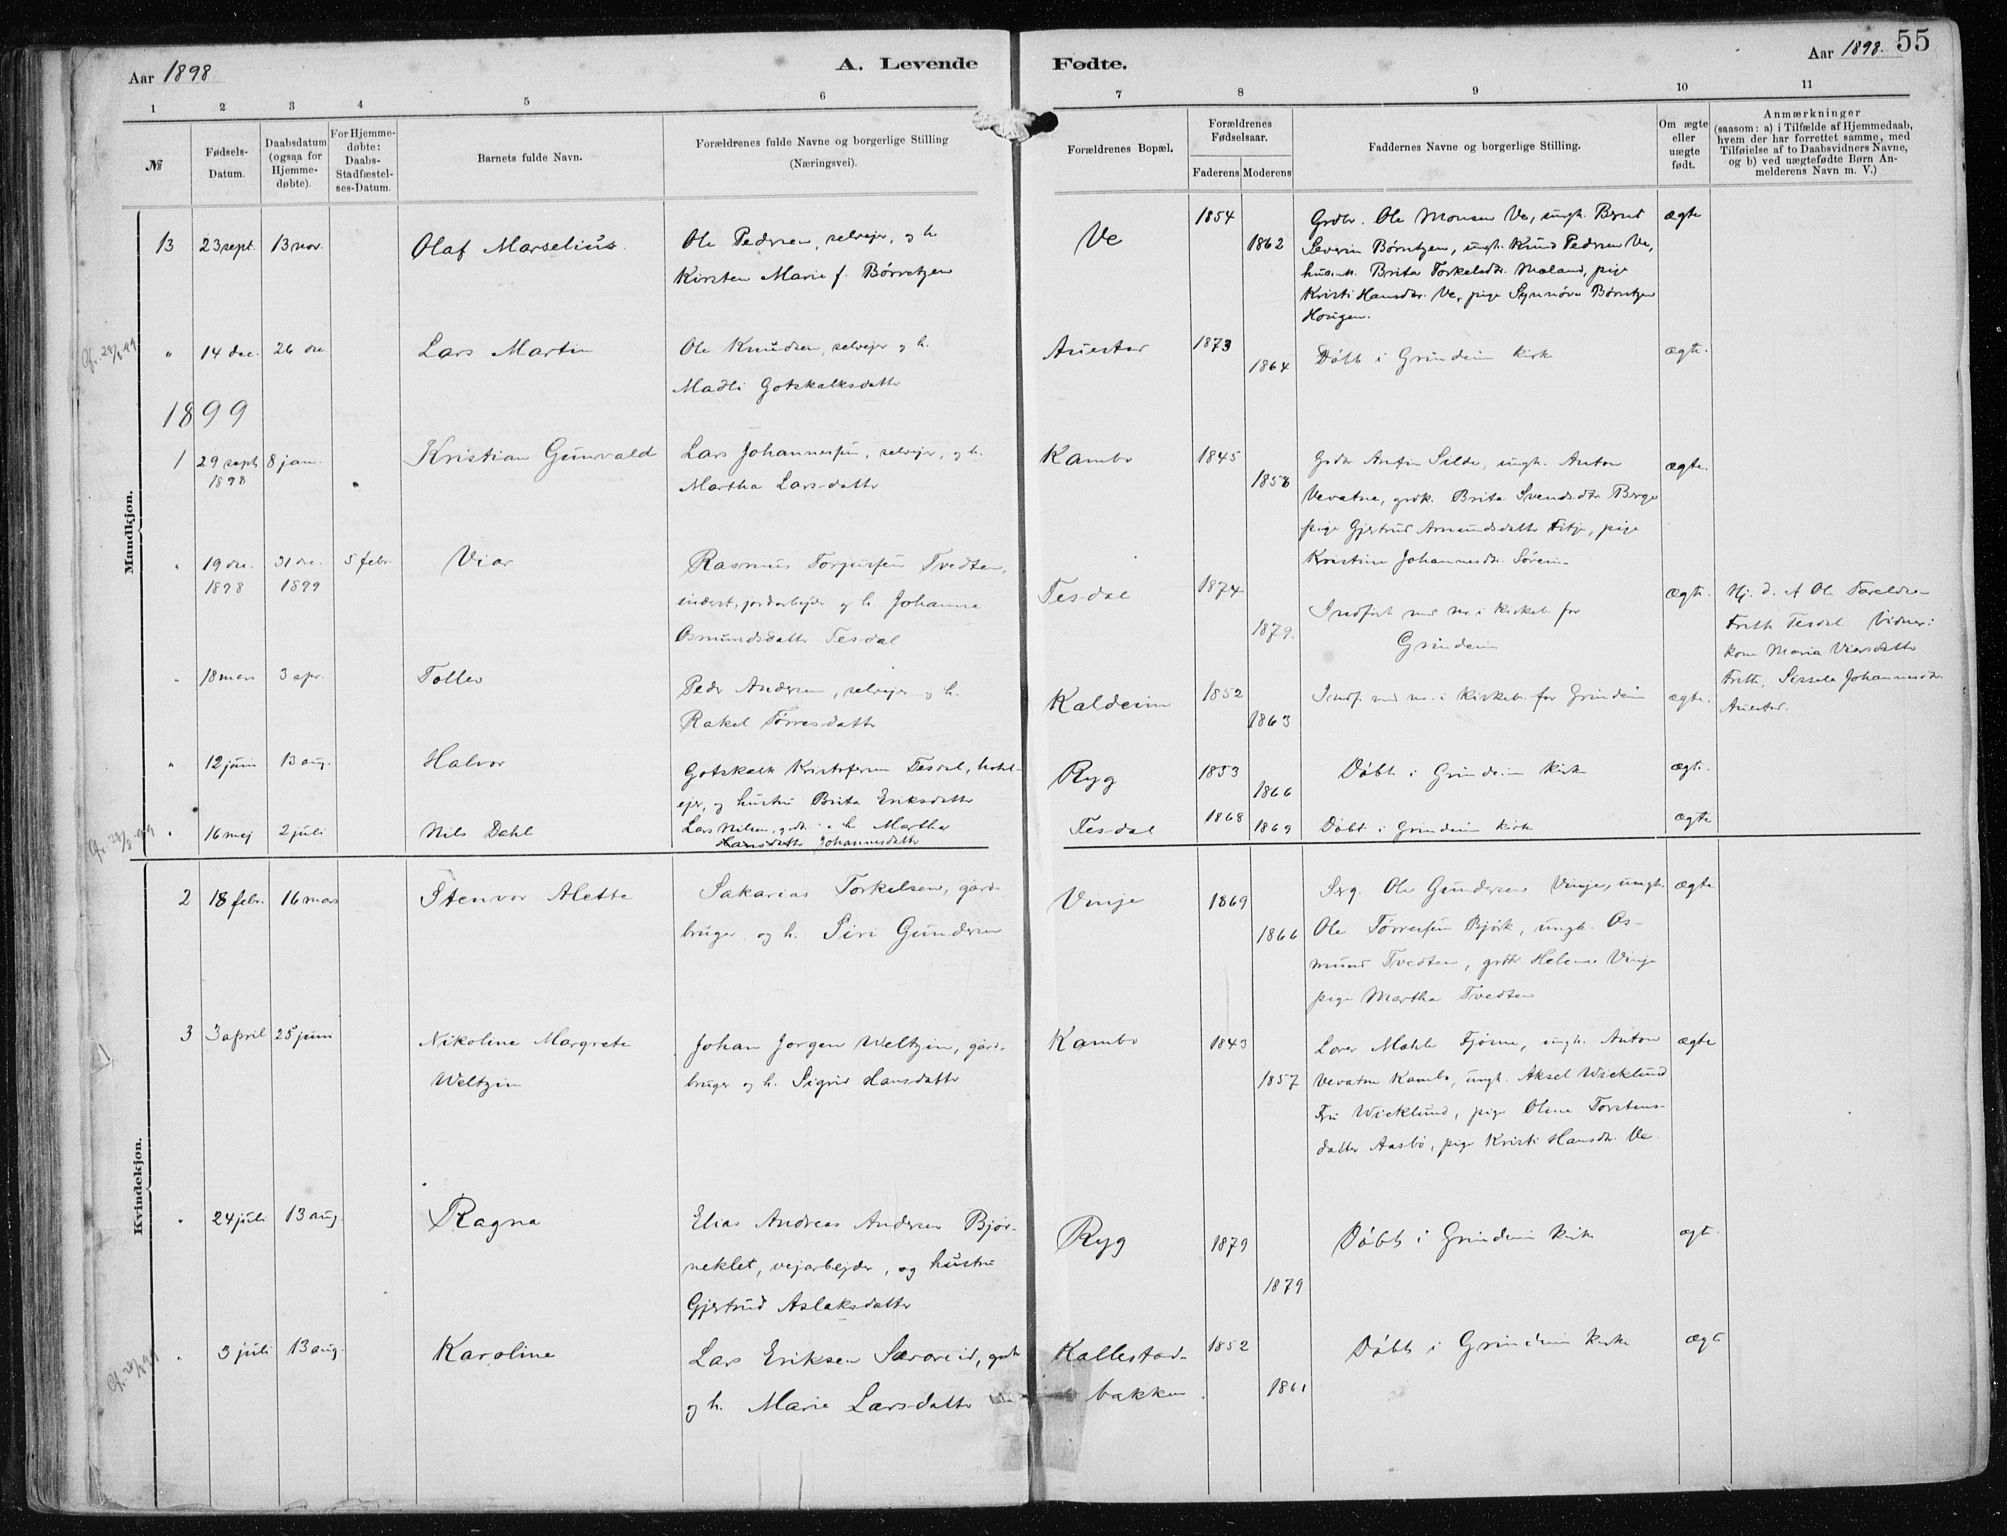 Aar 1898
A. Levende Fødte.
Aar 1898.
55
1 2 3 4 5 6 7 8 9 10 11
№
Fødsels-
Datum.
Daabsdatum
(ogsaa for
Hjemme-
døbte).
For Hjemme-
døbte:
Daabs-
Stadfæstel-
ses-Datum.
Barnets fulde Navn.
Forældrenes fulde Navne og borgerlige Stilling
(Næringsvei).
Forældrenes Bopæl.
Forældrenes
Fødselsaar.
Faderens Moderens
Faddernes Navne og borgerlige Stilling.
Om ægte
eller
uægte
født.
Anmærkninger
(saasom: a) i Tilfælde af Hjemmedaab,
hvem der har forrettet samme, med
Tilføielse af to Daabsvidners Navne,
og b) ved uægtefødte Børn An-
melderens Navn m. V.)
Mandkjøn.
13 23 sept. 13 nov. Olaf Marselius
Ole Pedersen, selvejer, og h.
Kirsten Marie f. Børretzen
Ve 1854 1862
Grdbr. Ole Monsen Ve, ungk. Bernt
Severin Børntzen, ungk. Knud Pedersen Ve,
Brita Torkelsdtr. Moland, pige
Kristi Hansdtr. Ve, pige Synnøve Børntzen
Hougen.
ægte
" 14 dec. 26 dec Lars Martin
Ole Knudsen, selvejer og h.
Madli Gotskalksdatter
Auestar 1873 1864
Døbt i Grindeim kirke
ægte.
1899
1 29 sept 8 jan.
1898
Kristian Gunvald
Lars Johannessen, selvejer, og h.
Martha Larsdatter
Kambo 1845 1858
Grdbr Anfin Silde, ungk. Anton
Vevatne, grdk. Brita Svendsdtr Berge
pige Gjertrud Amundsdatter Fitje, pige
Kristine Johannesdtr.
ægte.
" 19 dec. 31 dec. 5 febr. Viar
1898 1899
Rasmus Torjussen Tvedten,
inderst, jordarbejder og h. Johanne
Osmundsdatter Tesdal
Tesdal 1874 1879.
Indført med nr i kirkeb. for
Grindeim
ægte.
Hj. d. af Ole
Tesdal Vidner:
kone Maria Viarsdatter
Sissela Johannesdtr.
Auestar.
" 18 mars 3 apr. Tollev
Peder Andersen, selvejer og h.
Rakel Tørresdatter
Kaldeim 1852 1863
Indf. med nr. i kirkeb. for Grindeim
ægte.
" 12 juni 13 aug. Halvor
Gotskalk Kristofersen Tesdal, hotel-
ejer, og hustru Brita Eriksdatter
Ryg 1853 1866
Døbt i Grindeim kirke
ægte.
" 16 maj 2 juli Nils Dahl
Lars Nilsen, grdbr. og h. Martha
Hansdatter Johannesdatter
Tesdal 1868 1869
Døbt i Grindeim kirke
ægte
Kvindekjøn.
2 18 febr. 16 mars Stenvor Alette
Sakarias Torkelsen, gård-
bruger og h. Siri Gundersen
Vinje 1869 1866
Serg. Ole Gundersen Vinje, ungk.
Ole Tørressen Bjørk, ungk. Os-
mund Tvedten, grdk Helene Vinje
pige Martha Tvedten
ægte
3 3 april 25 juni Nikoline Margrete
Weltzin
Johan Jørgen Weltzin, gård-
bruger og h. Sigrid Hansdatter
Kambo 1843 1857
Lærer Mahle Fjøsne, ungk. Anton
Vevatne Kambo, ungk. Aksel Wicklund
Fru Wicklund, pige Oline Torstens-
datter Aasbø, pige Kristi Hansdtr. Ve.
ægte
" 24 juli 13 aug. Ragna
Elias Andreas Andersen Bjør-
neklet, vejarbejder, og hustru
Gjertrud Aslaksdatter
Ryg 1879 1879
Døbt i Grindeim kirke
ægte.
" 3 juli 13 aug. Karoline
Lars Eriksen Særvareid, grdbr
og h. Marie Larsdatter
Kallestad-
bakken 1852 1861
Døbt i Grindeim kirke
ægte